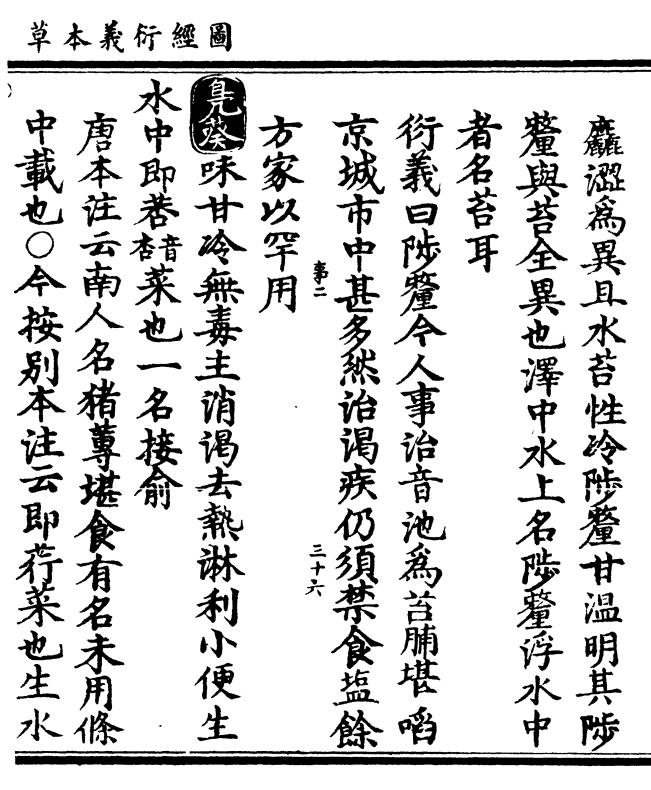 圖經衍義本草
麤澀爲異且水苔性冷陟釐甘温明其陟
釐與苔全異也澤中水上名陟釐浮水中
者名苔耳
衍義曰陟釐今人事治音池爲苔脯堪啗
京城市中甚多然治渴疾仍須禁食塩餘
事二
三十六
方家以罕用
鳧葵味甘冷無毒主消渴去熱淋利小便生
水中即莕音杏菜也一名接俞
唐本注云南人名猪蓴堪食有名未用條
中載也〇今按别本注云即荇菜也生水